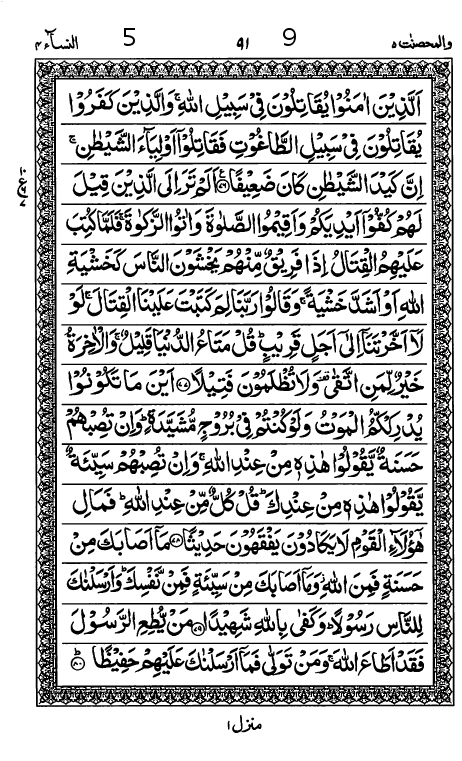 والمحصنت ۵ 9 ۹۱ 5 النسآء ۴
اَلَّذِيْنَ اٰمَنُوْا يُقَاتِلُوْنَ فِيْ سَبِيْلِ اللّٰهِ ۚ وَالَّذِيْنَ كَفَرُوْا
يُقَاتِلُوْنَ فِيْ سَبِيْلِ الطَّاغُوْتِ فَقَاتِلُوْٓا اَوْلِيَآءَ الشَّيْطٰنِ ۚ
اِنَّ كَيْدَ الشَّيْطٰنِ كَانَ ضَعِيْفًا ﴿۷۶﴾ اَلَمْ تَرَ اِلَى الَّذِيْنَ قِيْلَ
لَهُمْ كُفُّوْٓا اَيْدِيَكُمْ وَاَقِيْمُوا الصَّلٰوةَ وَاٰتُوا الزَّكٰوةَ ۚ فَلَمَّا كُتِبَ
عَلَيْهِمُ الْقِتَالُ اِذَا فَرِيْقٌ مِّنْهُمْ يَخْشَوْنَ النَّاسَ كَخَشْيَةِ
اللّٰهِ اَوْ اَشَدَّ خَشْيَةً ۚ وَقَالُوْا رَبَّنَا لِمَ كَتَبْتَ عَلَيْنَا الْقِتَالَ ۚ لَوْ
لَآ اَخَّرْتَنَآ اِلٰٓى اَجَلٍ قَرِيْبٍ ؕ قُلْ مَتَاعُ الدُّنْيَا قَلِيْلٌ ۚ وَالْاٰخِرَةُ
خَيْرٌ لِّمَنِ اتَّقٰى ۫ وَلَا تُظْلَمُوْنَ فَتِيْلًا ﴿۷۷﴾ اَيْنَ مَا تَكُوْنُوْا
يُدْرِكْكُّمُ الْمَوْتُ وَلَوْ كُنْتُمْ فِيْ بُرُوْجٍ مُّشَيَّدَةٍ ؕ وَاِنْ تُصِبْهُمْ
حَسَنَةٌ يَّقُوْلُوْا هٰذِهٖ مِنْ عِنْدِ اللّٰهِ ۚ وَاِنْ تُصِبْهُمْ سَيِّئَةٌ
يَّقُوْلُوْا هٰذِهٖ مِنْ عِنْدِكَ ؕ قُلْ كُلٌّ مِّنْ عِنْدِ اللّٰهِ ؕ فَمَالِ
هٰٓؤُلَآءِ الْقَوْمِ لَا يَكَادُوْنَ يَفْقَهُوْنَ حَدِيْثًا ﴿۷۸﴾ مَآ اَصَابَكَ مِنْ
حَسَنَةٍ فَمِنَ اللّٰهِ ۫ وَمَآ اَصَابَكَ مِنْ سَيِّئَةٍ فَمِنْ نَّفْسِكَ ؕ وَاَرْسَلْنٰكَ
لِلنَّاسِ رَسُوْلًا ؕ وَكَفٰى بِاللّٰهِ شَهِيْدًا ﴿۷۹﴾ مَنْ يُّطِعِ الرَّسُوْلَ
فَقَدْ اَطَاعَ اللّٰهَ ۚ وَمَنْ تَوَلّٰى فَمَآ اَرْسَلْنٰكَ عَلَيْهِمْ حَفِيْظًا ﴿۸۰﴾
منزل ۱